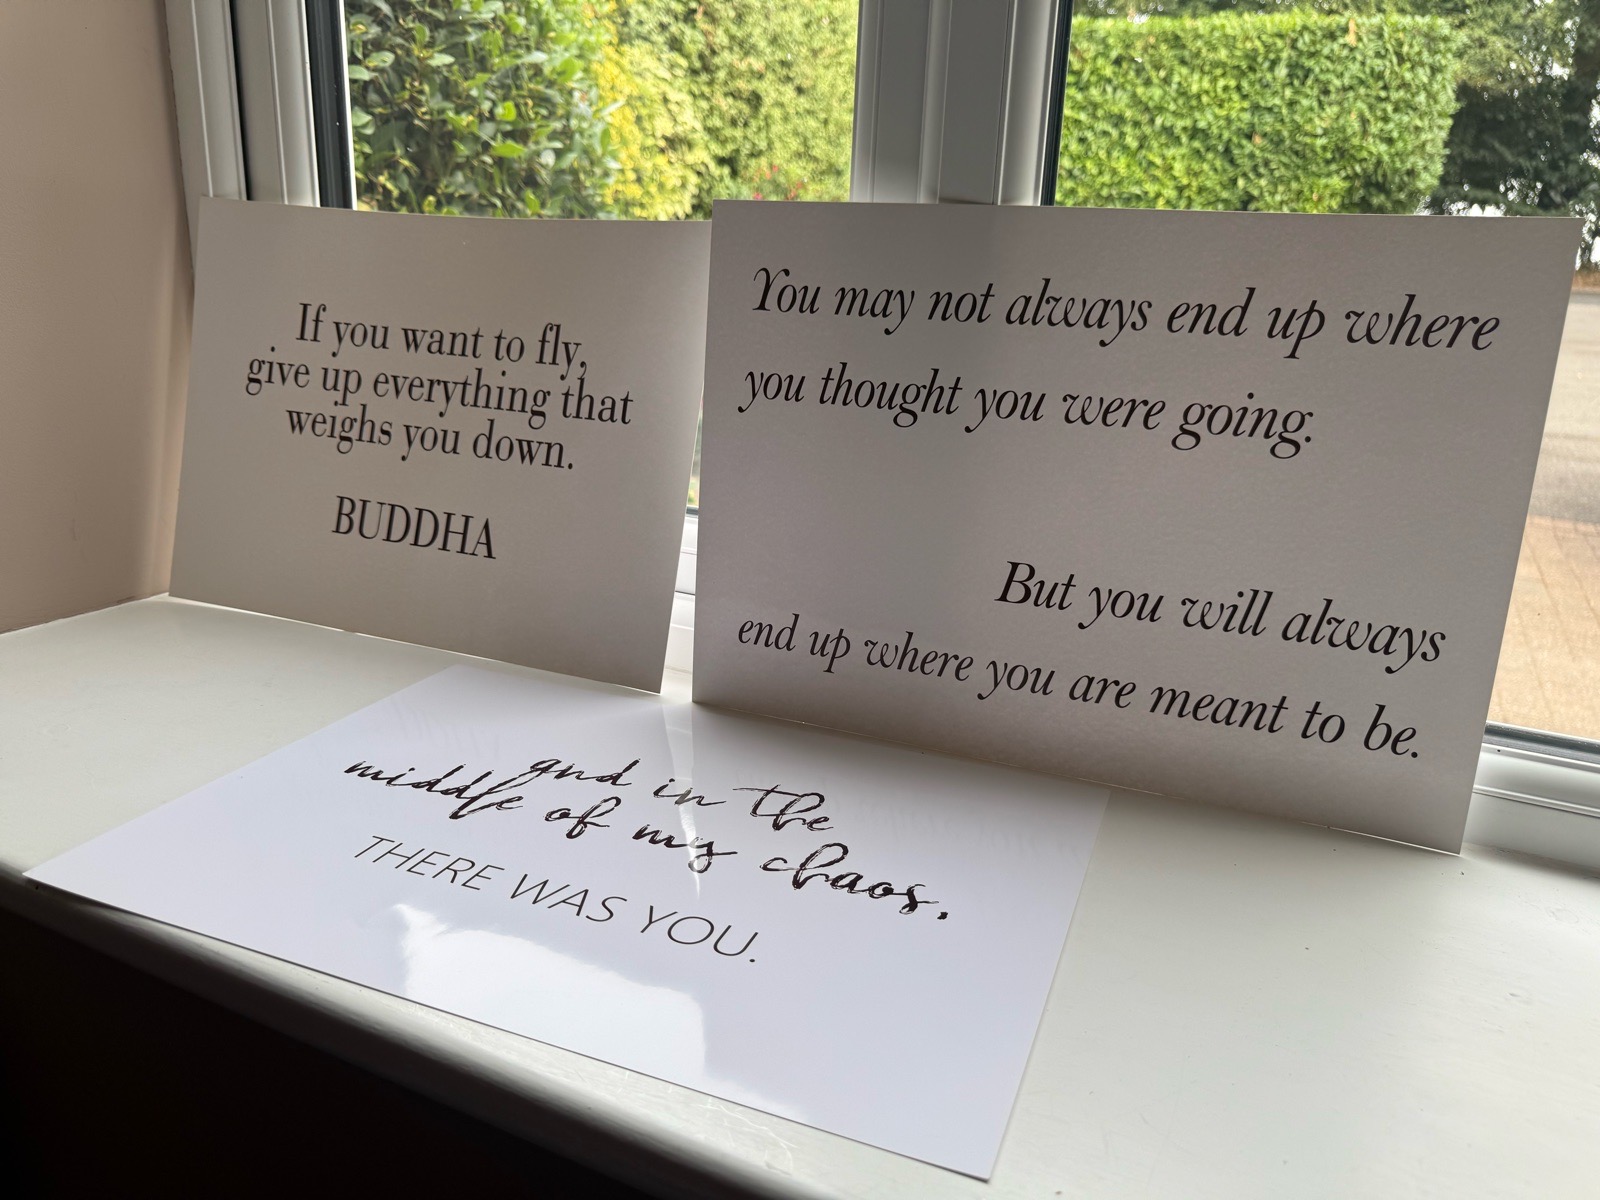 If you want to fly,
give up everything that
weighs you down.
BUDDHA
You may not always end up where
you thought you were going.
But you will always
end up where you are meant to be.
and in the
middle of my chaos.
THERE WAS YOU.